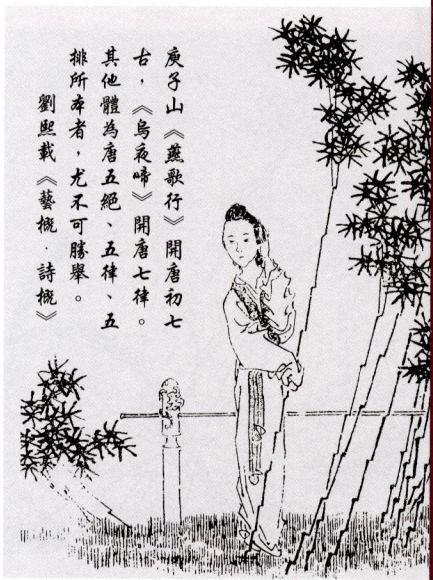 庾子山《燕歌行》開唐初七
古，《烏夜啼》開唐七律。
其他體為唐五絕、五律、五
排所本者，尤不可勝舉。
劉熙載《藝概·詩概》